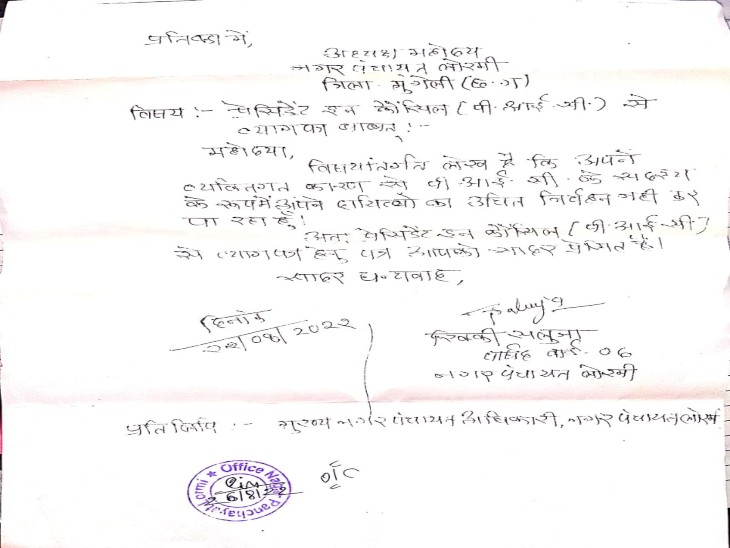 प्रतिष्ठा में,
अध्यक्ष महोदय
नगर पंचायत लोरमी
जिला - मुंगेली (छ.ग)
विषय :- प्रेसिडेंट इन कौंसिल (पी.आई.सी.) से
त्यागपत्र बाबत् :-
महोदया,
विषयांतर्गत लेख है कि अपने
व्यक्तिगत कारण से पी.आई.सी. के सदस्य
के रूप में अपने दायित्वों का उचित निर्वहन नहीं कर
पा रहा हूँ।
अतः प्रेसिडेंट इन कौंसिल (पी.आई.सी)
से त्यागपत्र हेतु पत्र आपको सादर प्रेषित है।
सादर धन्यवाद,
दिनाँक
/08/2022
Saluja
सलुजा
पार्षद वार्ड-06
नगर पंचायत लोरमी
प्रतिलिपि :- मुख्य नगर पंचायत अधिकारी, नगर पंचायत लोरमी
O/C
Office Nagar Panchayat Lormi
6/8/22